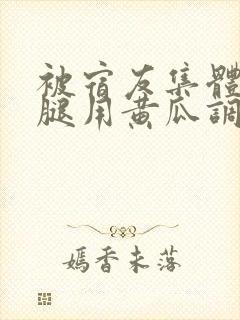 被宿友集體
腿用黃瓜調
嫣香未落